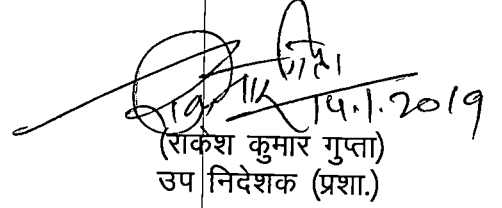 14.1.2019
(राकेश कुमार गुप्ता)
उप निदेशक (प्रशा.)